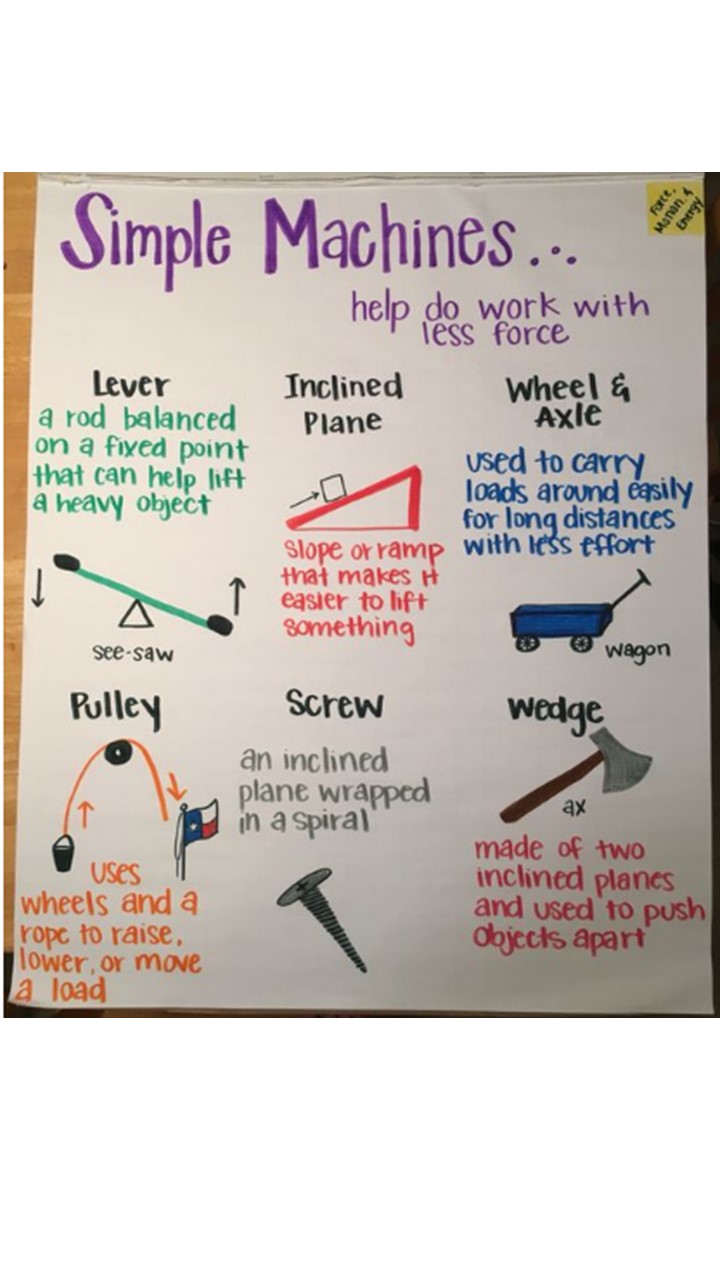 Simple Machines...
Force,
Motion, &
Energy
help do work with
less force
Lever
a rod balanced
on a fixed point
that can help lift
a heavy object
see-saw
Inclined
Plane
slope or ramp
that makes it
easier to lift
something
Wheel &
Axle
used to carry
loads around easily
for long distances
with less effort
wagon
Pulley
uses
wheels and a
rope to raise,
lower, or move
a load
Screw
an inclined
plane wrapped
in a spiral
Wedge
ax
made of two
inclined planes
and used to push
objects apart